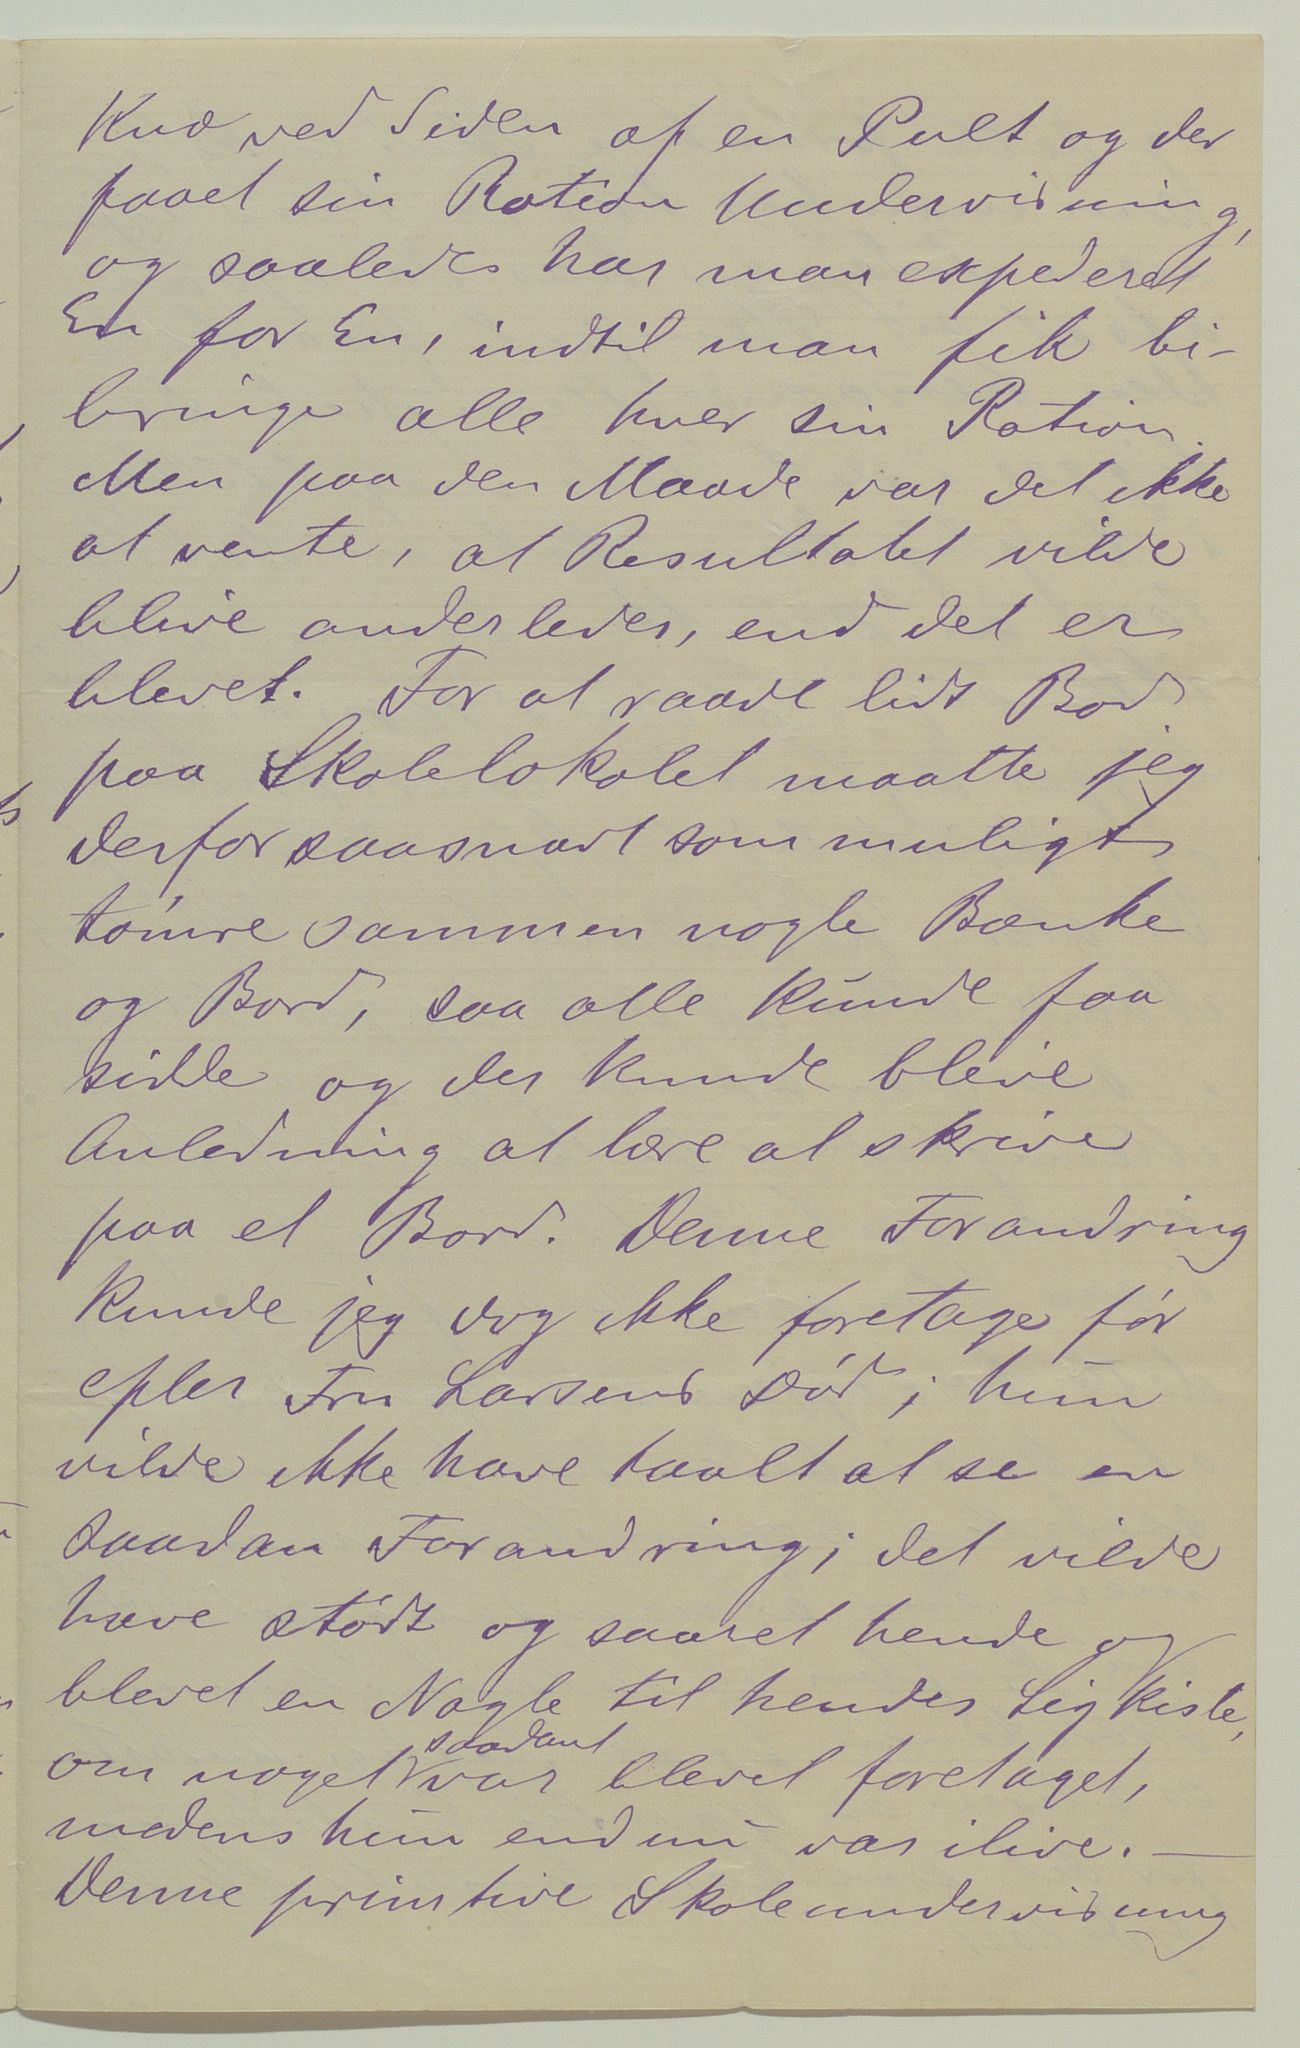 Knæ ved Siden af en Pult og der
faaet sin Ration Undervisning,
og saaledes har man expederet
En for En, indtil man fik bi-
bringe alle hver sin Ration.
Men paa den Maade var det ikke
at vente, at Resultatet vilde
blive anderledes, end det er
blevet. For at raade lidt Bod
paa Skolelokalet maatte jeg
derfor saasnart som muligt
tømre sammen nogle Bænke
og Bord, saa alle kunde faa
sidde og der kunde blive
Anledning at lære at skrive
paa et Bord. Denne Forandring
kunde jeg dog ikke foretage før
efter Fru Larsens Død; hun
vilde ikke have taalt at se en
saadan Forandring; det vilde
have stødt og saaret hende og
blevet en Nagle til hendes Ligkiste,
om noget saadant var blevet foretaget,
medens hun endnu var ilive. —
Denne primtive Skoleundervisning